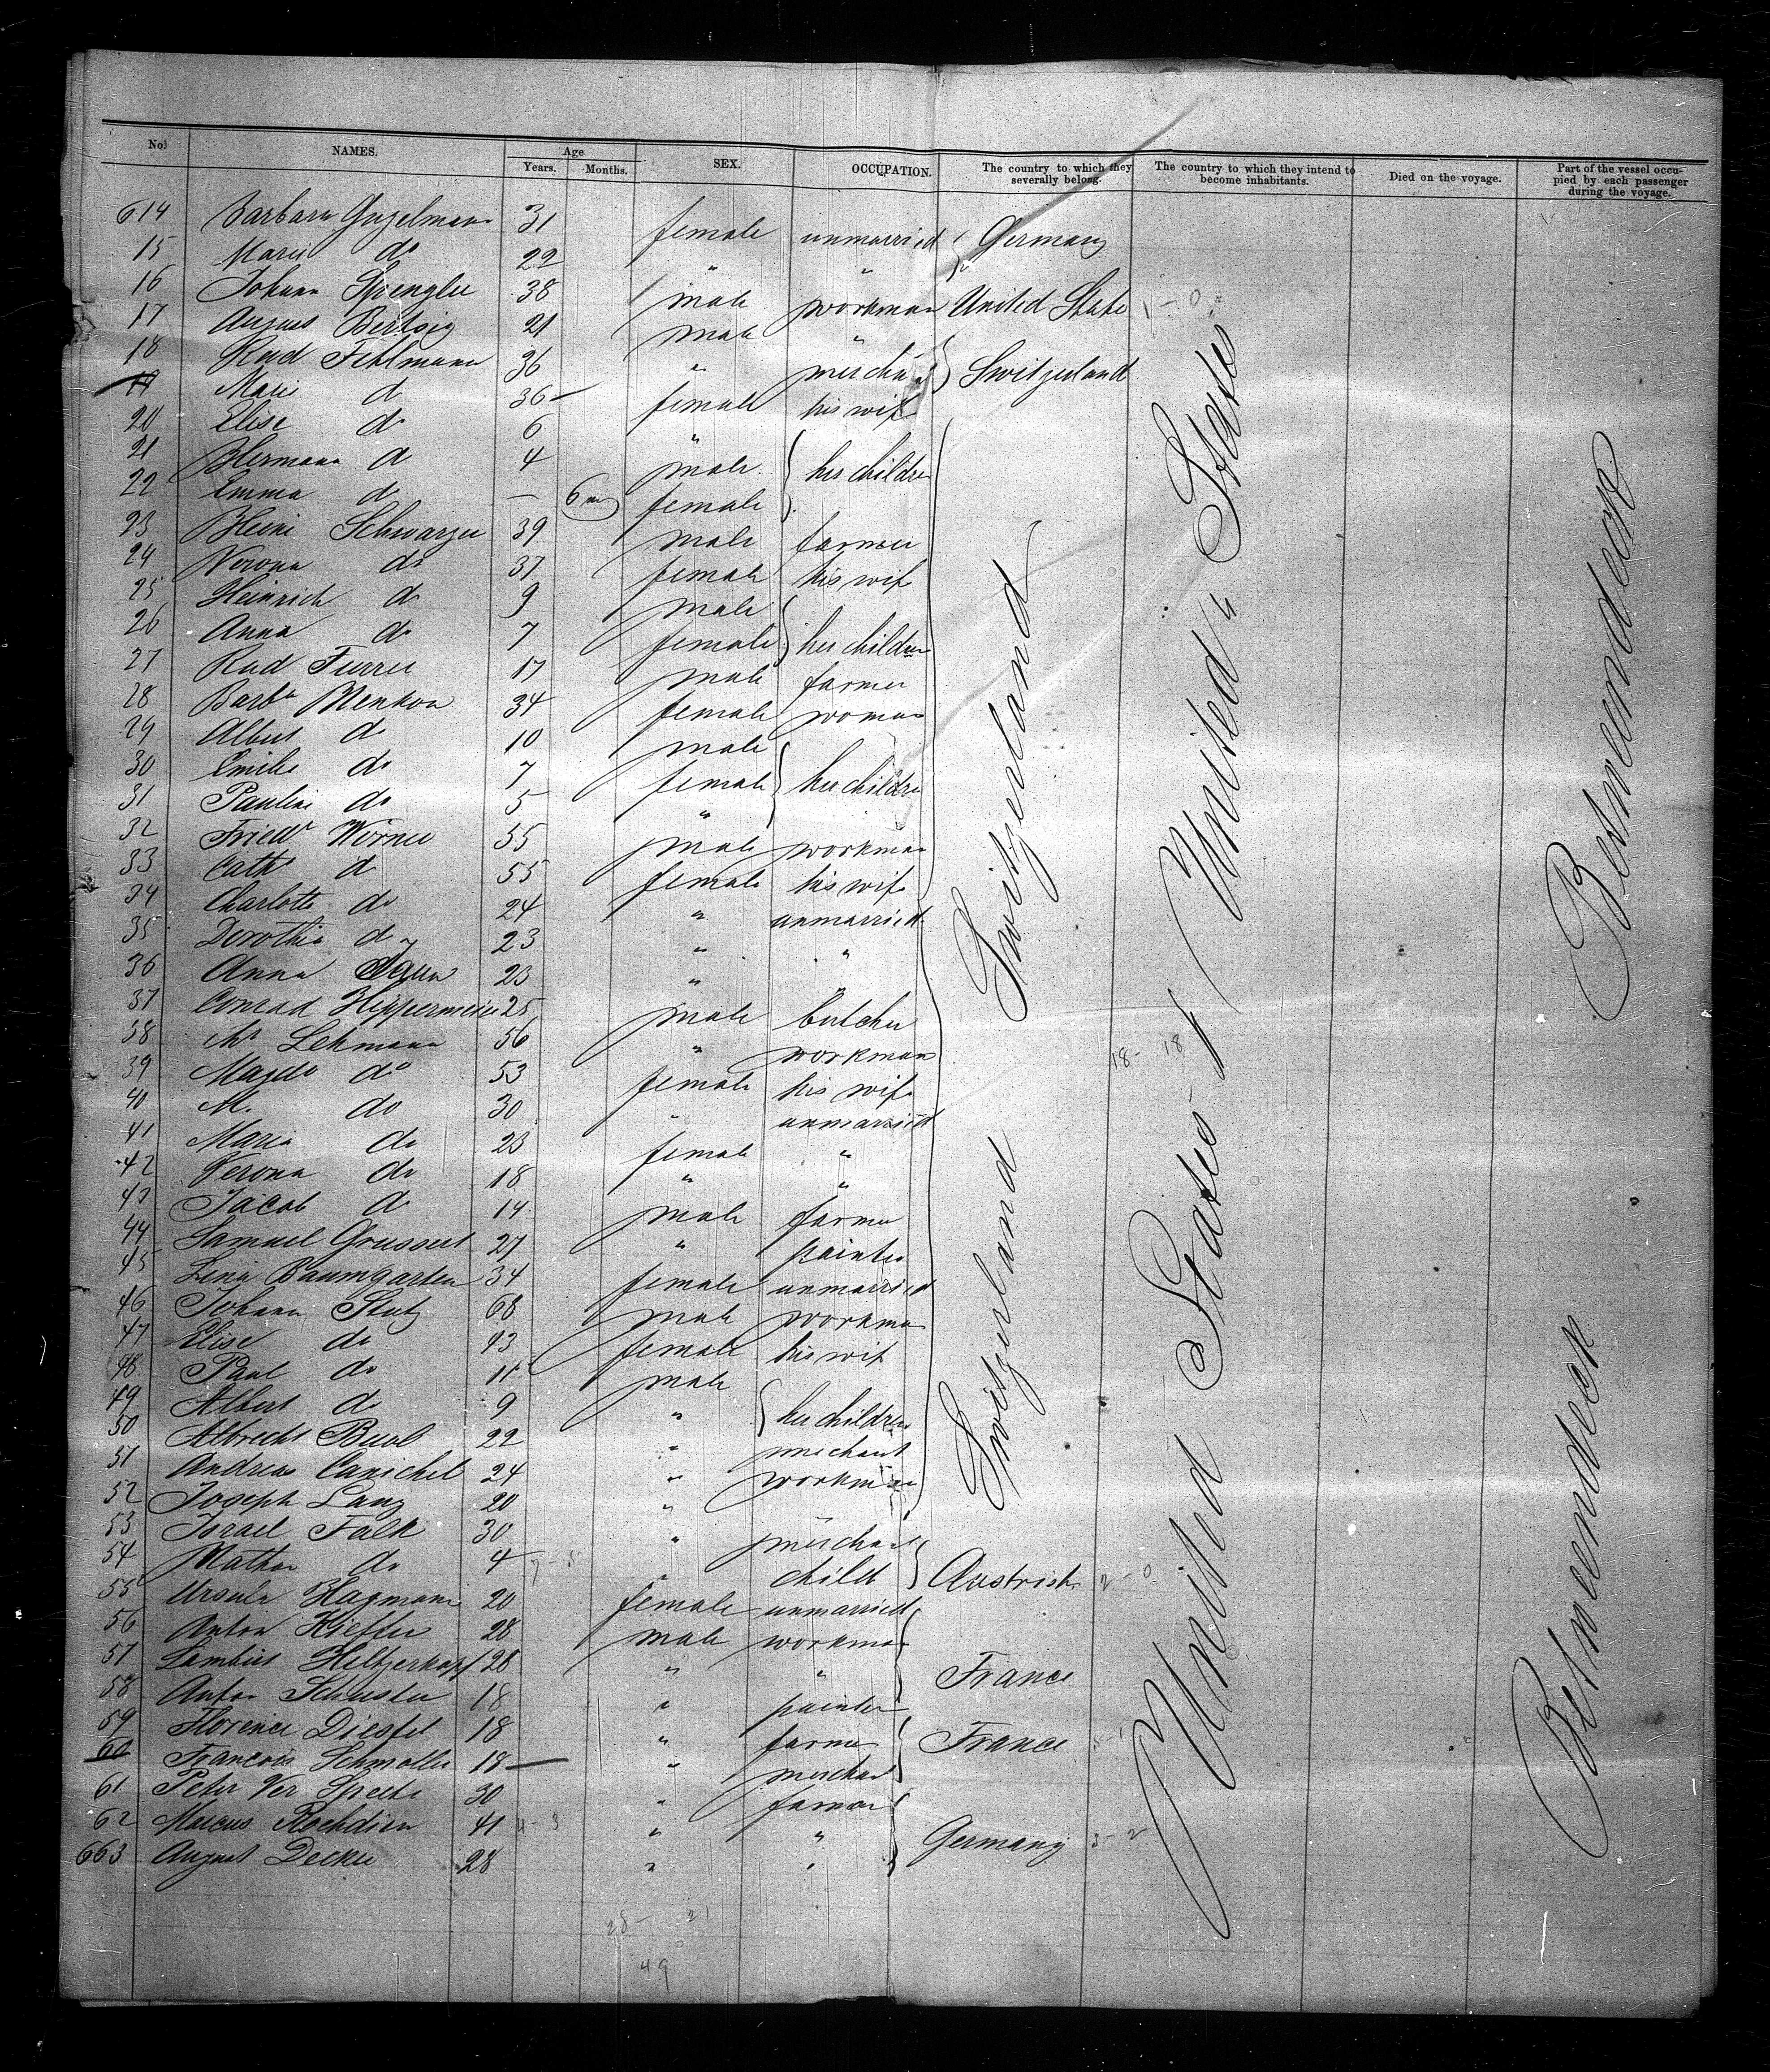 No. NAMES. Age Years. Months. SEX. OCCUPATION. The country to which they severally belong. The country to which they intend to become inhabitants. Died on the voyage. Part of the vessel occupied by each passenger during the voyage.
614 Barbara 31 female unmarried Germany
15 Marie do 22 " "
16 Johann Spengler 38 male workman United State
17 August 21 male "
18 Rud Fehlmann 36 " Switzerland
19 Marie d 36 — female his wife
20 Elise do 6 "
21 Hermann d 4 male her children
22 Emma d — 6 m female
23 Heini Schwarzer 39 male farmer
24 Verona do 37 female his wife
25 Heinrich do 9 male
26 Anna do 7 female her children
27 Rud Furrer 17 male farmer
28 Barba 34 female woman
29 Albert do 10 male
30 Emilie do 7 female her children
31 Pauline do 5 "
32 Friedr Wörner 55 male workman
33 Cath d 55 female his wife
34 Charlotte do 24 " unmarried
35 Dorothia do 23 " "
36 Anna 23 " "
37 Conrad Hippermeier 25 male butcher
38 Lehmann 56 " workman
39 Magda do 53 female his wife
40 M. do 30 " unmarried
41 Maria do 23 female "
42 Verona do 18 " "
43 Jacob d 14 male farmer
44 Samuel Grussert 27 " painter
45 Lena Baumgarten 34 female unmarried
46 Johann Stutz 68 male workman
47 Elise do 43 female his wife
48 Paul do 11 male
49 Albert do 9 " her children
50 Albrecht Buol 22 " merchant
51 Andreas Canichel 24 " workman
52 Joseph Lang 20 "
53 Israel Falk 30 " merchant
54 Nathan do 4 " child Austria 2-0
55 Ursula Hagmann 20 female unmarried
56 Anton Kieffer 28 male workman
57 28 " " France
58 Anton Schuster 18 " painter
59 Florence 18 " farmer France
60 Francois Schmoller 18 — " merchant
61 Peter Ver 30 " farmer
62 Marcus 41 4-3 " " Germany 3-2
663 August Decker 28 " "
Switzerland
Switzerland
United States
United States
18- 18
Betweendeck
Betweendeck
28- 21
49